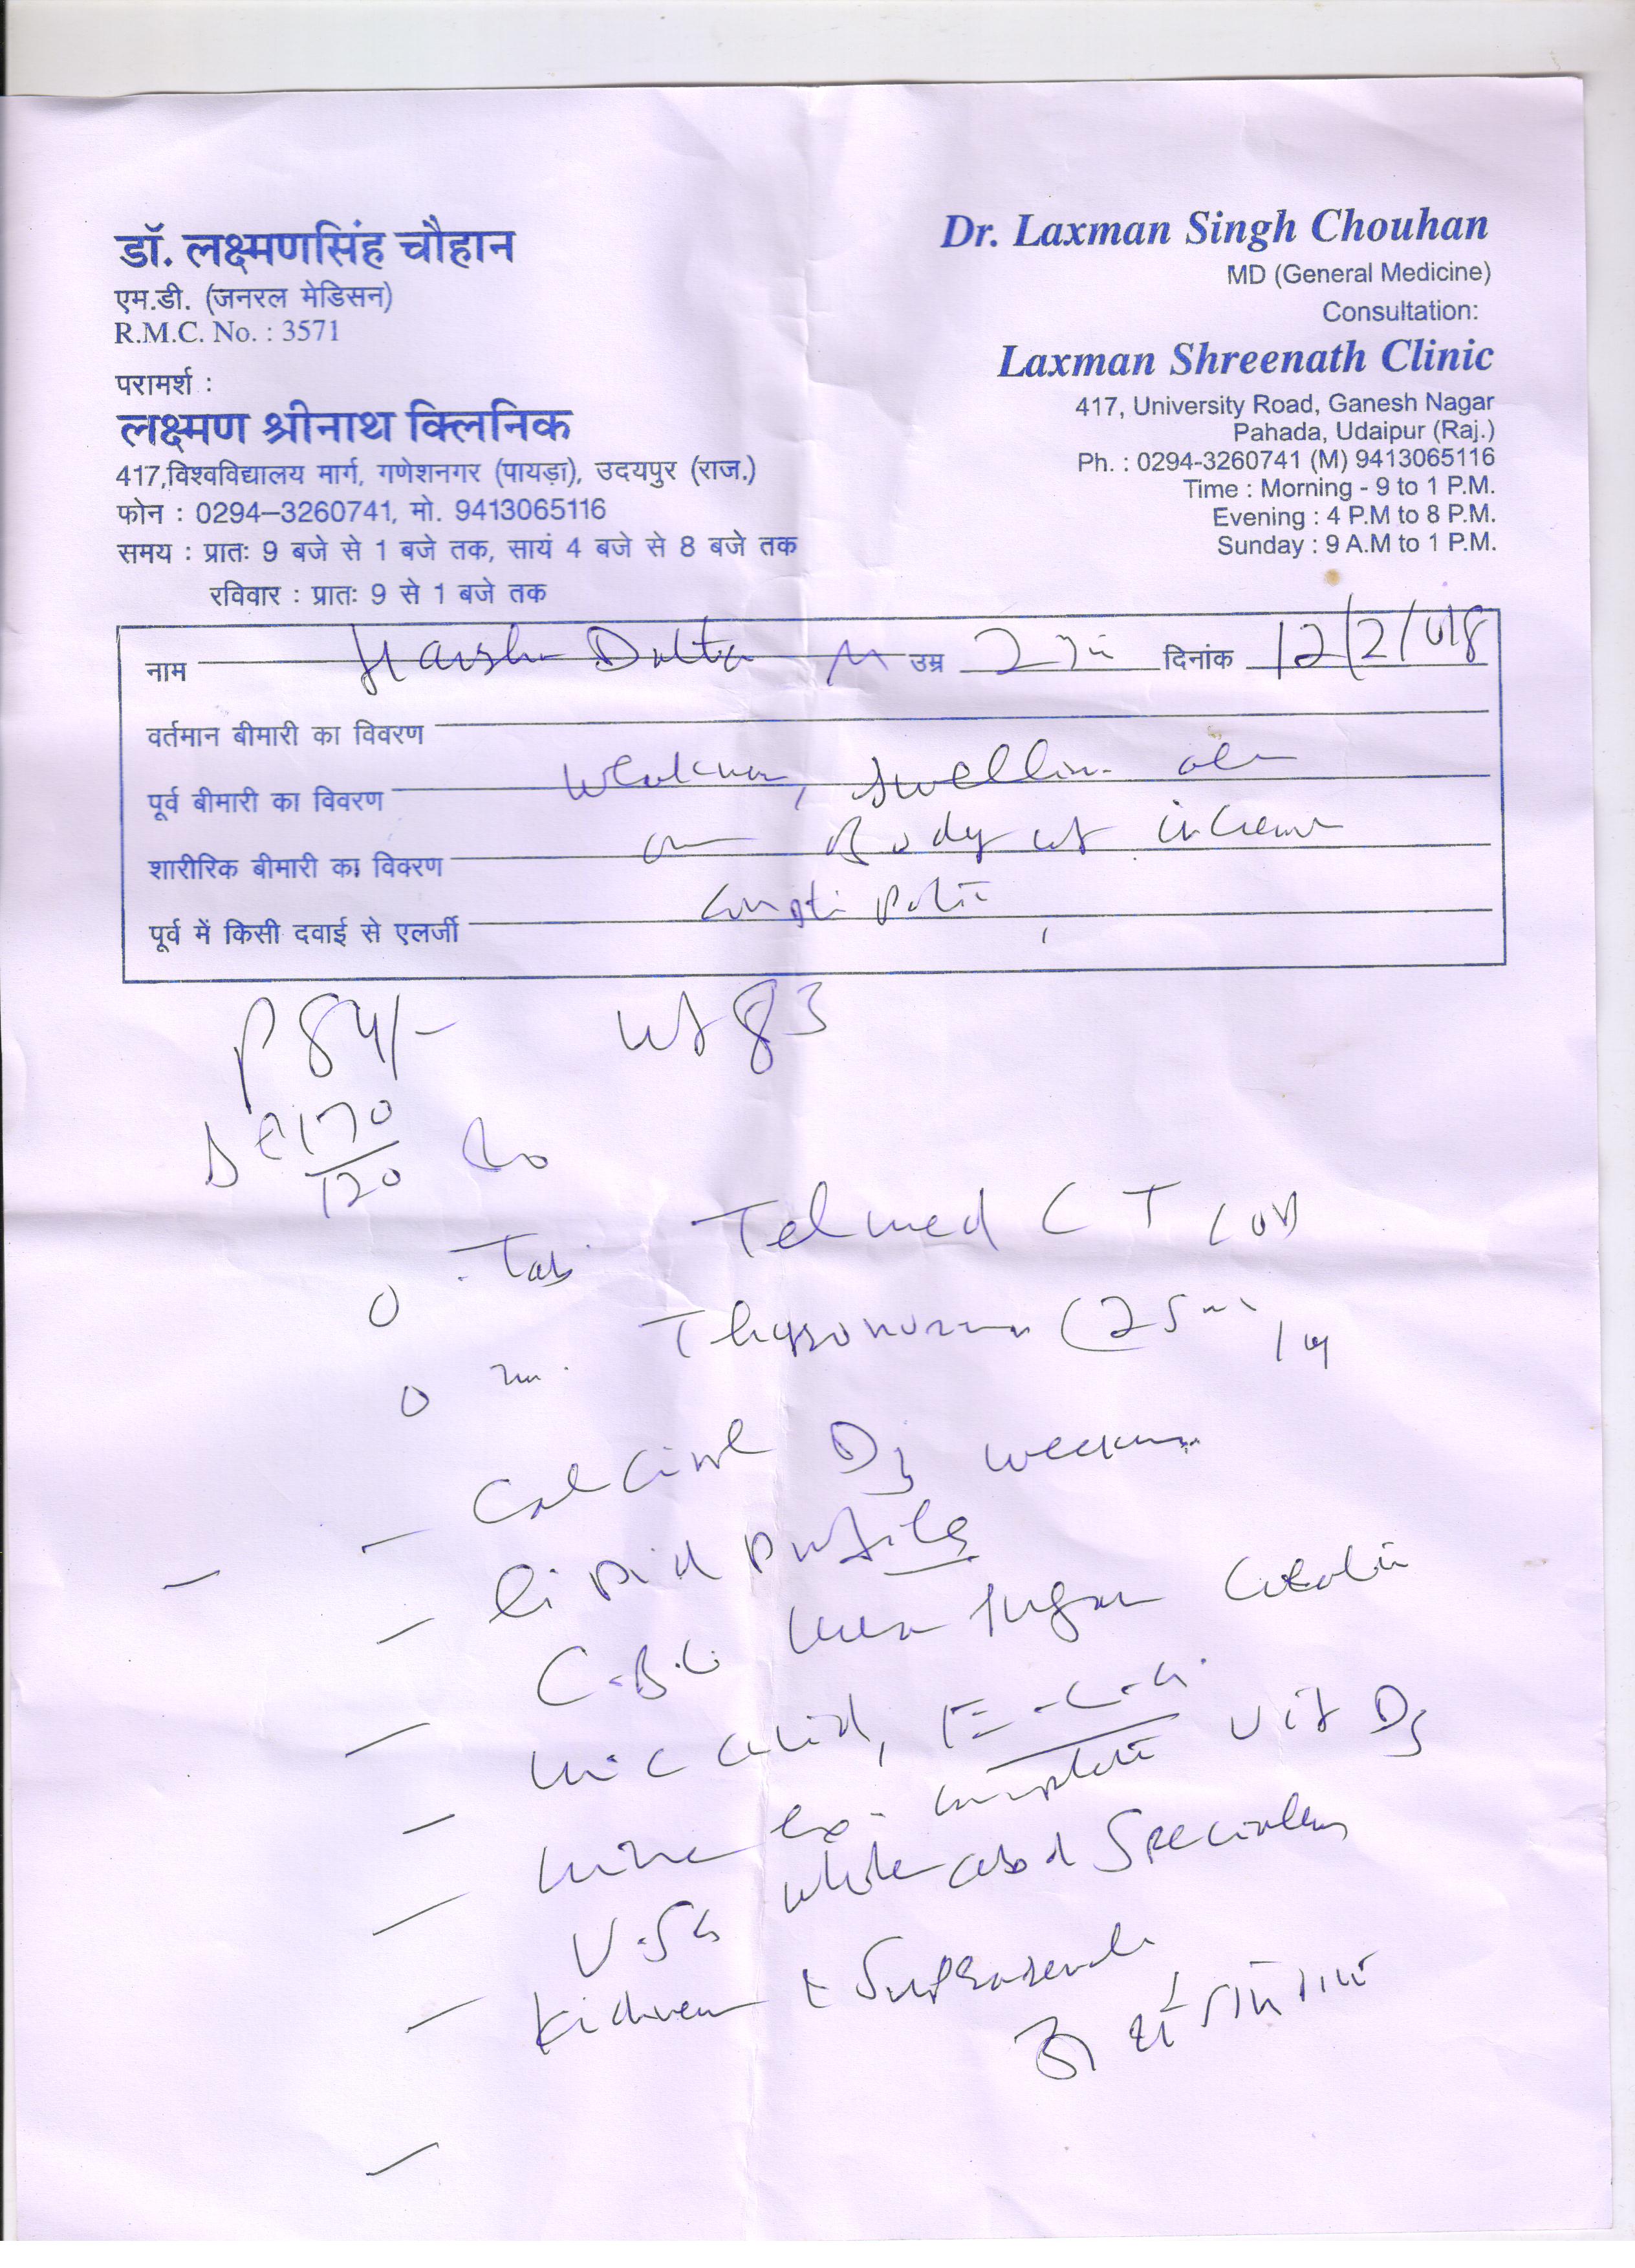 डॉ. लक्ष्मणसिंह चौहान
एम.डी. (जनरल मेडिसन)
R.M.C. No. : 3571
परामर्श :
लक्ष्मण श्रीनाथ क्लिनिक
417,विश्वविद्यालय मार्ग, गणेशनगर (पायड़ा), उदयपुर (राज.)
फोन : 0294–3260741, मो. 9413065116
समय : प्रातः 9 बजे से 1 बजे तक, सायं 4 बजे से 8 बजे तक
रविवार : प्रातः 9 से 1 बजे तक
Dr. Laxman Singh Chouhan
MD (General Medicine)
Consultation:
Laxman Shreenath Clinic
417, University Road, Ganesh Nagar
Pahada, Udaipur (Raj.)
Ph. : 0294-3260741 (M) 9413065116
Time : Morning - 9 to 1 P.M.
Evening : 4 P.M to 8 P.M.
Sunday : 9 A.M to 1 P.M.
नाम Harsh Dutta M उम्र दिनांक 12/2/018
वर्तमान बीमारी का विवरण
पूर्व बीमारी का विवरण Weakness, swelling
शारीरिक बीमारी का विवरण Body wt increase
पूर्व में किसी दवाई से एलर्जी
P 84/- wt 83
170
120
Tab. Telmed CT
Thyronorm (25
Calcirol D3 weekly
lipid profile
C.B.C. Urea Sugar Creatin
uric acid, E.C.G.
urine ex. complete Vit D3
U.S.G whole abd Specially
Kidney + Suprarenal